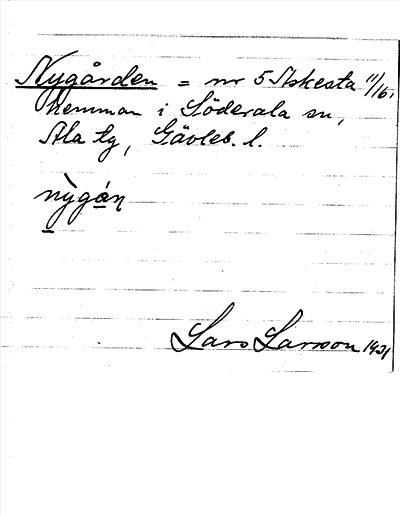 Nygården = nr 5 Askesta 11/16.
Hemman i Söderala sn,
Ala tg, Gävleb. l.
nỳgán
Lars Larsson 1931